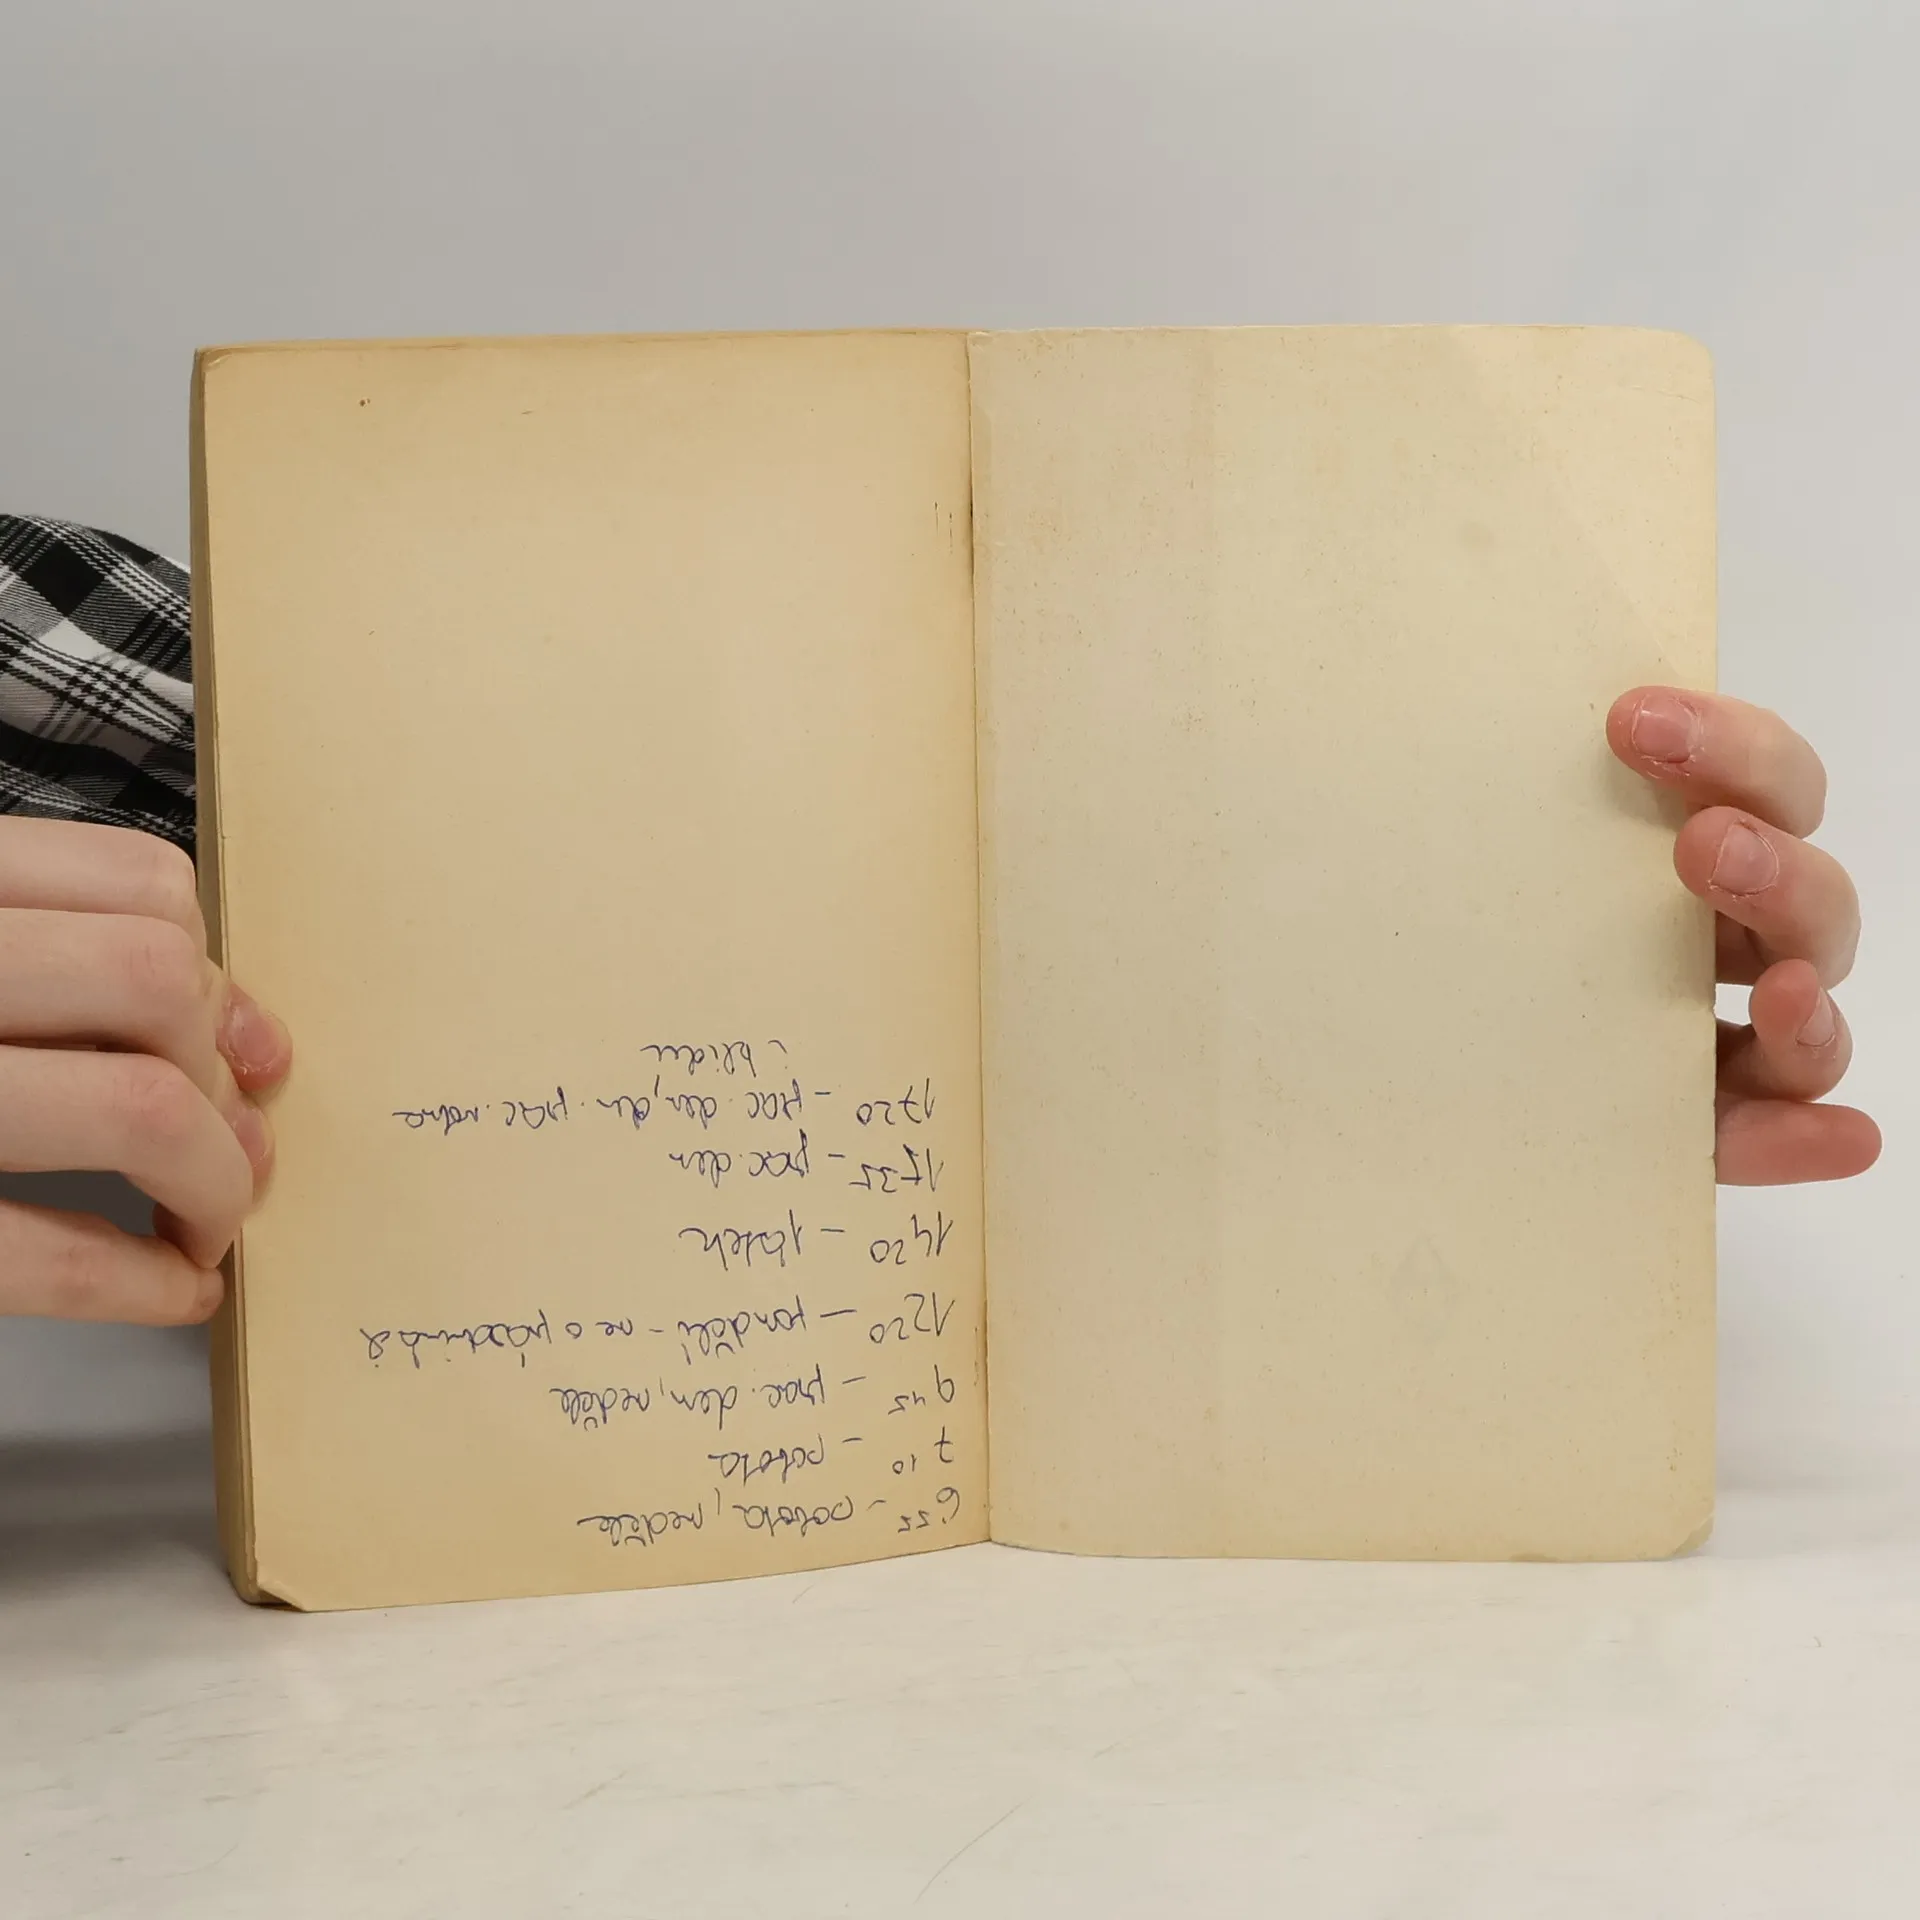 6 55 - sobota, neděle
7 10 - sobota
9 45 - prac. den, neděle
12 20 - pondělí - ne o prázdninách
14 20 - pátek
15 35 - prac. den
17 20 - prac. den, dn. prac. volna